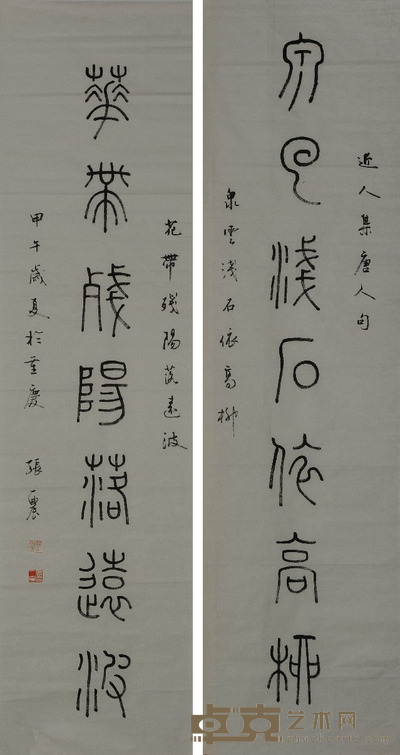 近人集唐人句
泉云淺石依高柳
泉雲淺石依高柳
花帶殘陽落遠波
華帶殘陽落遠波
甲午歲夏於重慶 張
卓克艺术网